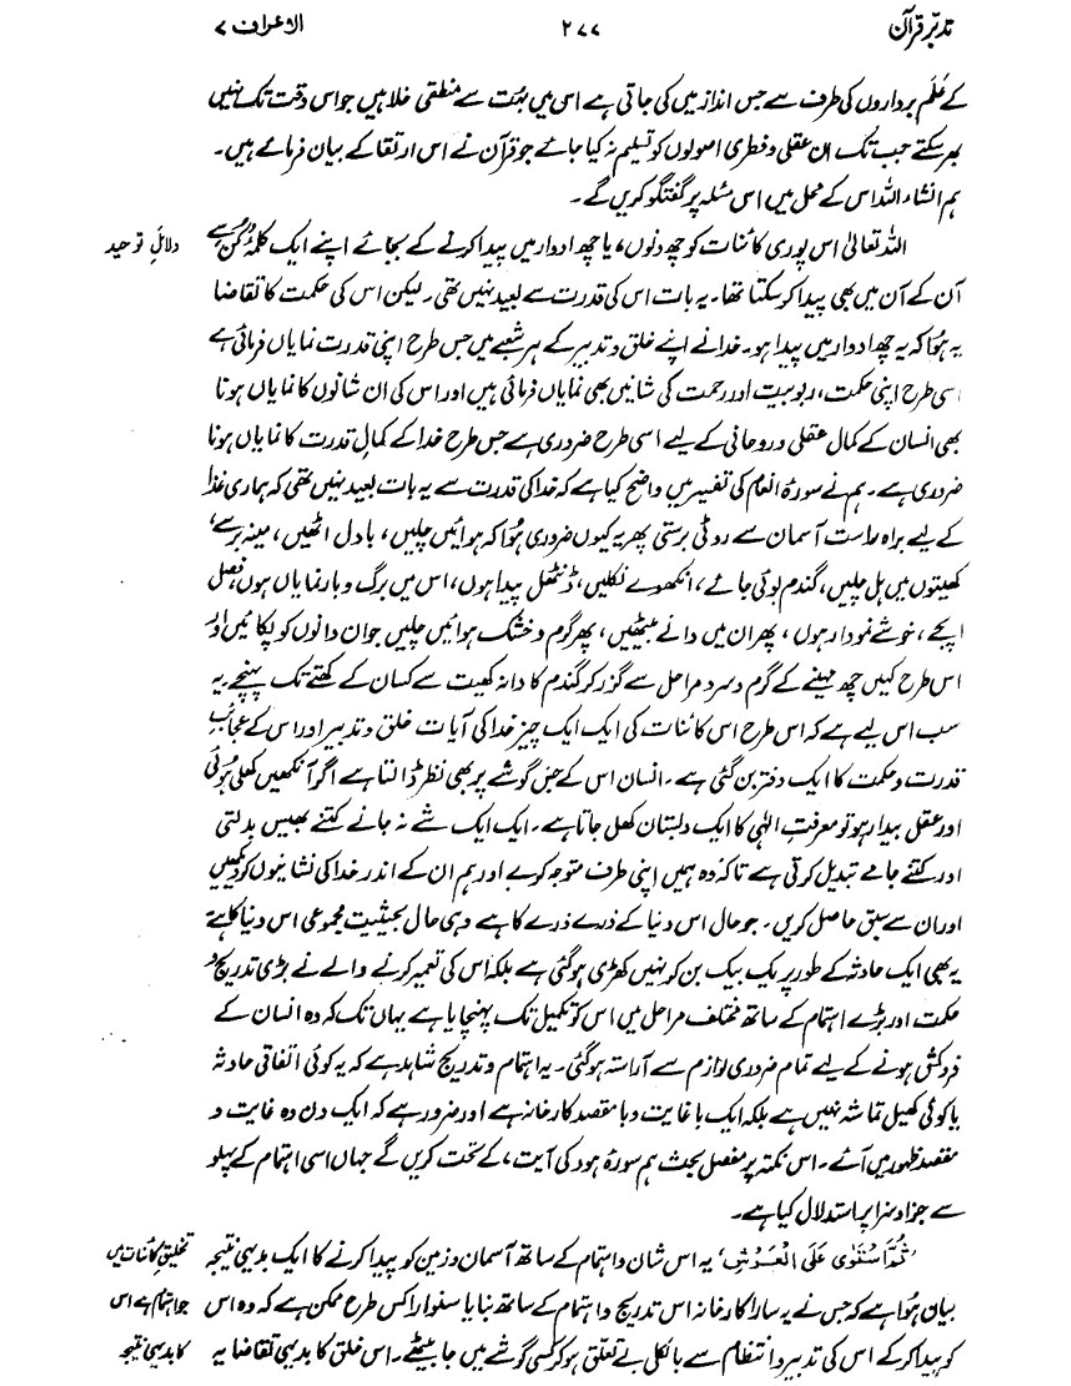 تدبّرِ قرآن ۲۷۷ الاعراف ۷
کے عَلَم برداروں کی طرف سے جس انداز میں کی جاتی ہے اس میں بہت سے منطقی خلا ہیں جو اس وقت تک نہیں
بھر سکتے جب تک ان عقلی و فطری اصولوں کو تسلیم نہ کیا جائے جو قرآن نے اس ارتقا کے بیان فرمائے ہیں۔
ہم انشاء اللہ اس کے محل میں اس مسئلہ پر گفتگو کریں گے۔
اللہ تعالیٰ اس پوری کائنات کو چھ دنوں، یا چھ ادوار میں پیدا کرنے کے بجائے اپنے ایک کلمۂ کُن سے
دلائلِ توحید
آن کے آن میں بھی پیدا کر سکتا تھا۔ یہ بات اس کی قدرت سے بعید نہیں تھی۔ لیکن اس کی حکمت کا تقاضا
یہ ہُوا کہ یہ چھ ادوار میں پیدا ہو۔ خدا نے اپنے خلق و تدبیر کے ہر شعبے میں جس طرح اپنی قدرت نمایاں فرمائی ہے
اسی طرح اپنی حکمت، ربوبیت اور رحمت کی شانیں بھی نمایاں فرمائی ہیں اور اس کی ان شانوں کا نمایاں ہونا
بھی انسان کے کمال عقلی و روحانی کے لیے اسی طرح ضروری ہے جس طرح خدا کے کمالِ قدرت کا نمایاں ہونا
ضروری ہے۔ ہم نے سورۂ انعام کی تفسیر میں واضح کیا ہے کہ خدا کی قدرت سے یہ بات بعید نہیں تھی کہ ہماری غذا
کے لیے براہ راست آسمان سے روٹی برستی پھر یہ کیوں ضروری ہُوا کہ ہوائیں چلیں، بادل اٹھیں، مینہ برسے،
کھیتوں میں ہل چلیں، گندم بوئی جائے، انکھوے نکلیں، ڈنٹھل پیدا ہوں، اس میں برگ و بار نمایاں ہوں، فصل
اپجے، خوشے نمودار ہوں، پھر ان میں دانے بیٹھیں، پھر گرم و خشک ہوائیں چلیں جو ان دانوں کو پکائیں اور
اس طرح کہیں چھ مہینے کے گرم و سرد مراحل سے گزر کر گندم کا دانہ کھیت سے کسان کے کھتے تک پہنچے۔ یہ
سب اس لیے ہے کہ اس طرح اس کائنات کی ایک ایک چیز خدا کی آیات خلق و تدبیر اور اس کے عجائبِ
قدرت و حکمت کا ایک دفتر بن گئی ہے۔ انسان اس کے جس گوشے پر بھی نظر ڈالتا ہے اگر آنکھیں کھلی ہُوئی
اور عقل بیدار ہو تو معرفتِ الٰہی کا ایک دبستان کھل جاتا ہے۔ ایک ایک شے نہ جانے کتنے بھیس بدلتی
اور کتنے جامے تبدیل کرتی ہے تاکہ وہ ہمیں اپنی طرف متوجہ کرے اور ہم ان کے اندر خدا کی نشانیوں کو دیکھیں
اور ان سے سبق حاصل کریں۔ جو حال اس دنیا کے ذرے ذرے کا ہے وہی حال بحیثیت مجموعی اس دنیا کا ہے
یہ بھی ایک حادثہ کے طور پر یک بیک بن کر نہیں کھڑی ہو گئی ہے بلکہ اس کی تعمیر کرنے والے نے بڑی تدریج و
حکمت اور بڑے اہتمام کے ساتھ مختلف مراحل میں اس کو تکمیل تک پہنچایا ہے یہاں تک کہ وہ انسان کے
فروکش ہونے کے لیے تمام ضروری لوازم سے آراستہ ہو گئی۔ یہ اہتمام و تدریج شاہد ہے کہ یہ کوئی اتفاقی حادثہ
یا کوئی کھیل تماشہ نہیں ہے بلکہ ایک با غایت و با مقصد کارخانہ ہے اور ضرور ہے کہ ایک دن وہ غایت و
مقصد ظہور میں آئے۔ اس نکتہ پر مفصل بحث ہم سورۂ ہود کی آیت ۷ کے تحت کریں گے جہاں اسی اہتمام کے پہلو
سے جزا و سزا پر استدلال کیا ہے۔
’ثُمَّ اسْتَوٰی عَلَی الْعَرْشِ‘ یہ اس شان و اہتمام کے ساتھ آسمان و زمین کو پیدا کرنے کا ایک بدیہی نتیجہ
تخلیقِ کائنات میں
بیان ہُوا ہے کہ جس نے یہ سارا کارخانہ اس تدریج و اہتمام کے ساتھ بنایا سنوارا کس طرح ممکن ہے کہ وہ اس
جو اہتمام ہے اس
کو پیدا کر کے اس کی تدبیر و انتظام سے بالکل بے تعلق ہو کر کسی گوشے میں جا بیٹھے۔ اس خلق کا بدیہی تقاضا یہ
کا بدیہی نتیجہ